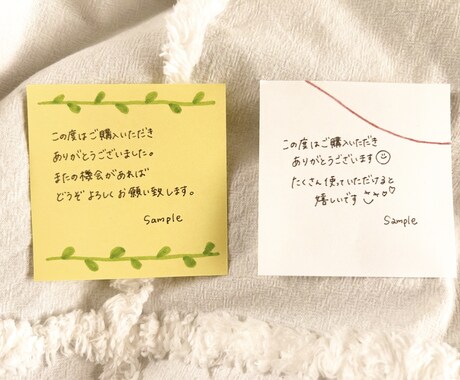 この度はご購入いただき
ありがとうございました。
またの機会があれば
どうぞよろしくお願い致します。
Sample
この度はご購入いただき
ありがとうございます
たくさん使っていただけると
嬉しいです
Sample